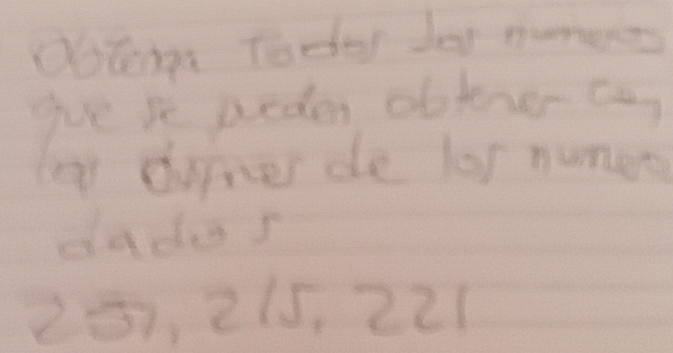 Obtenga Todos los numeros
que se pueden obtener con
los de los numero
dados
215, 221